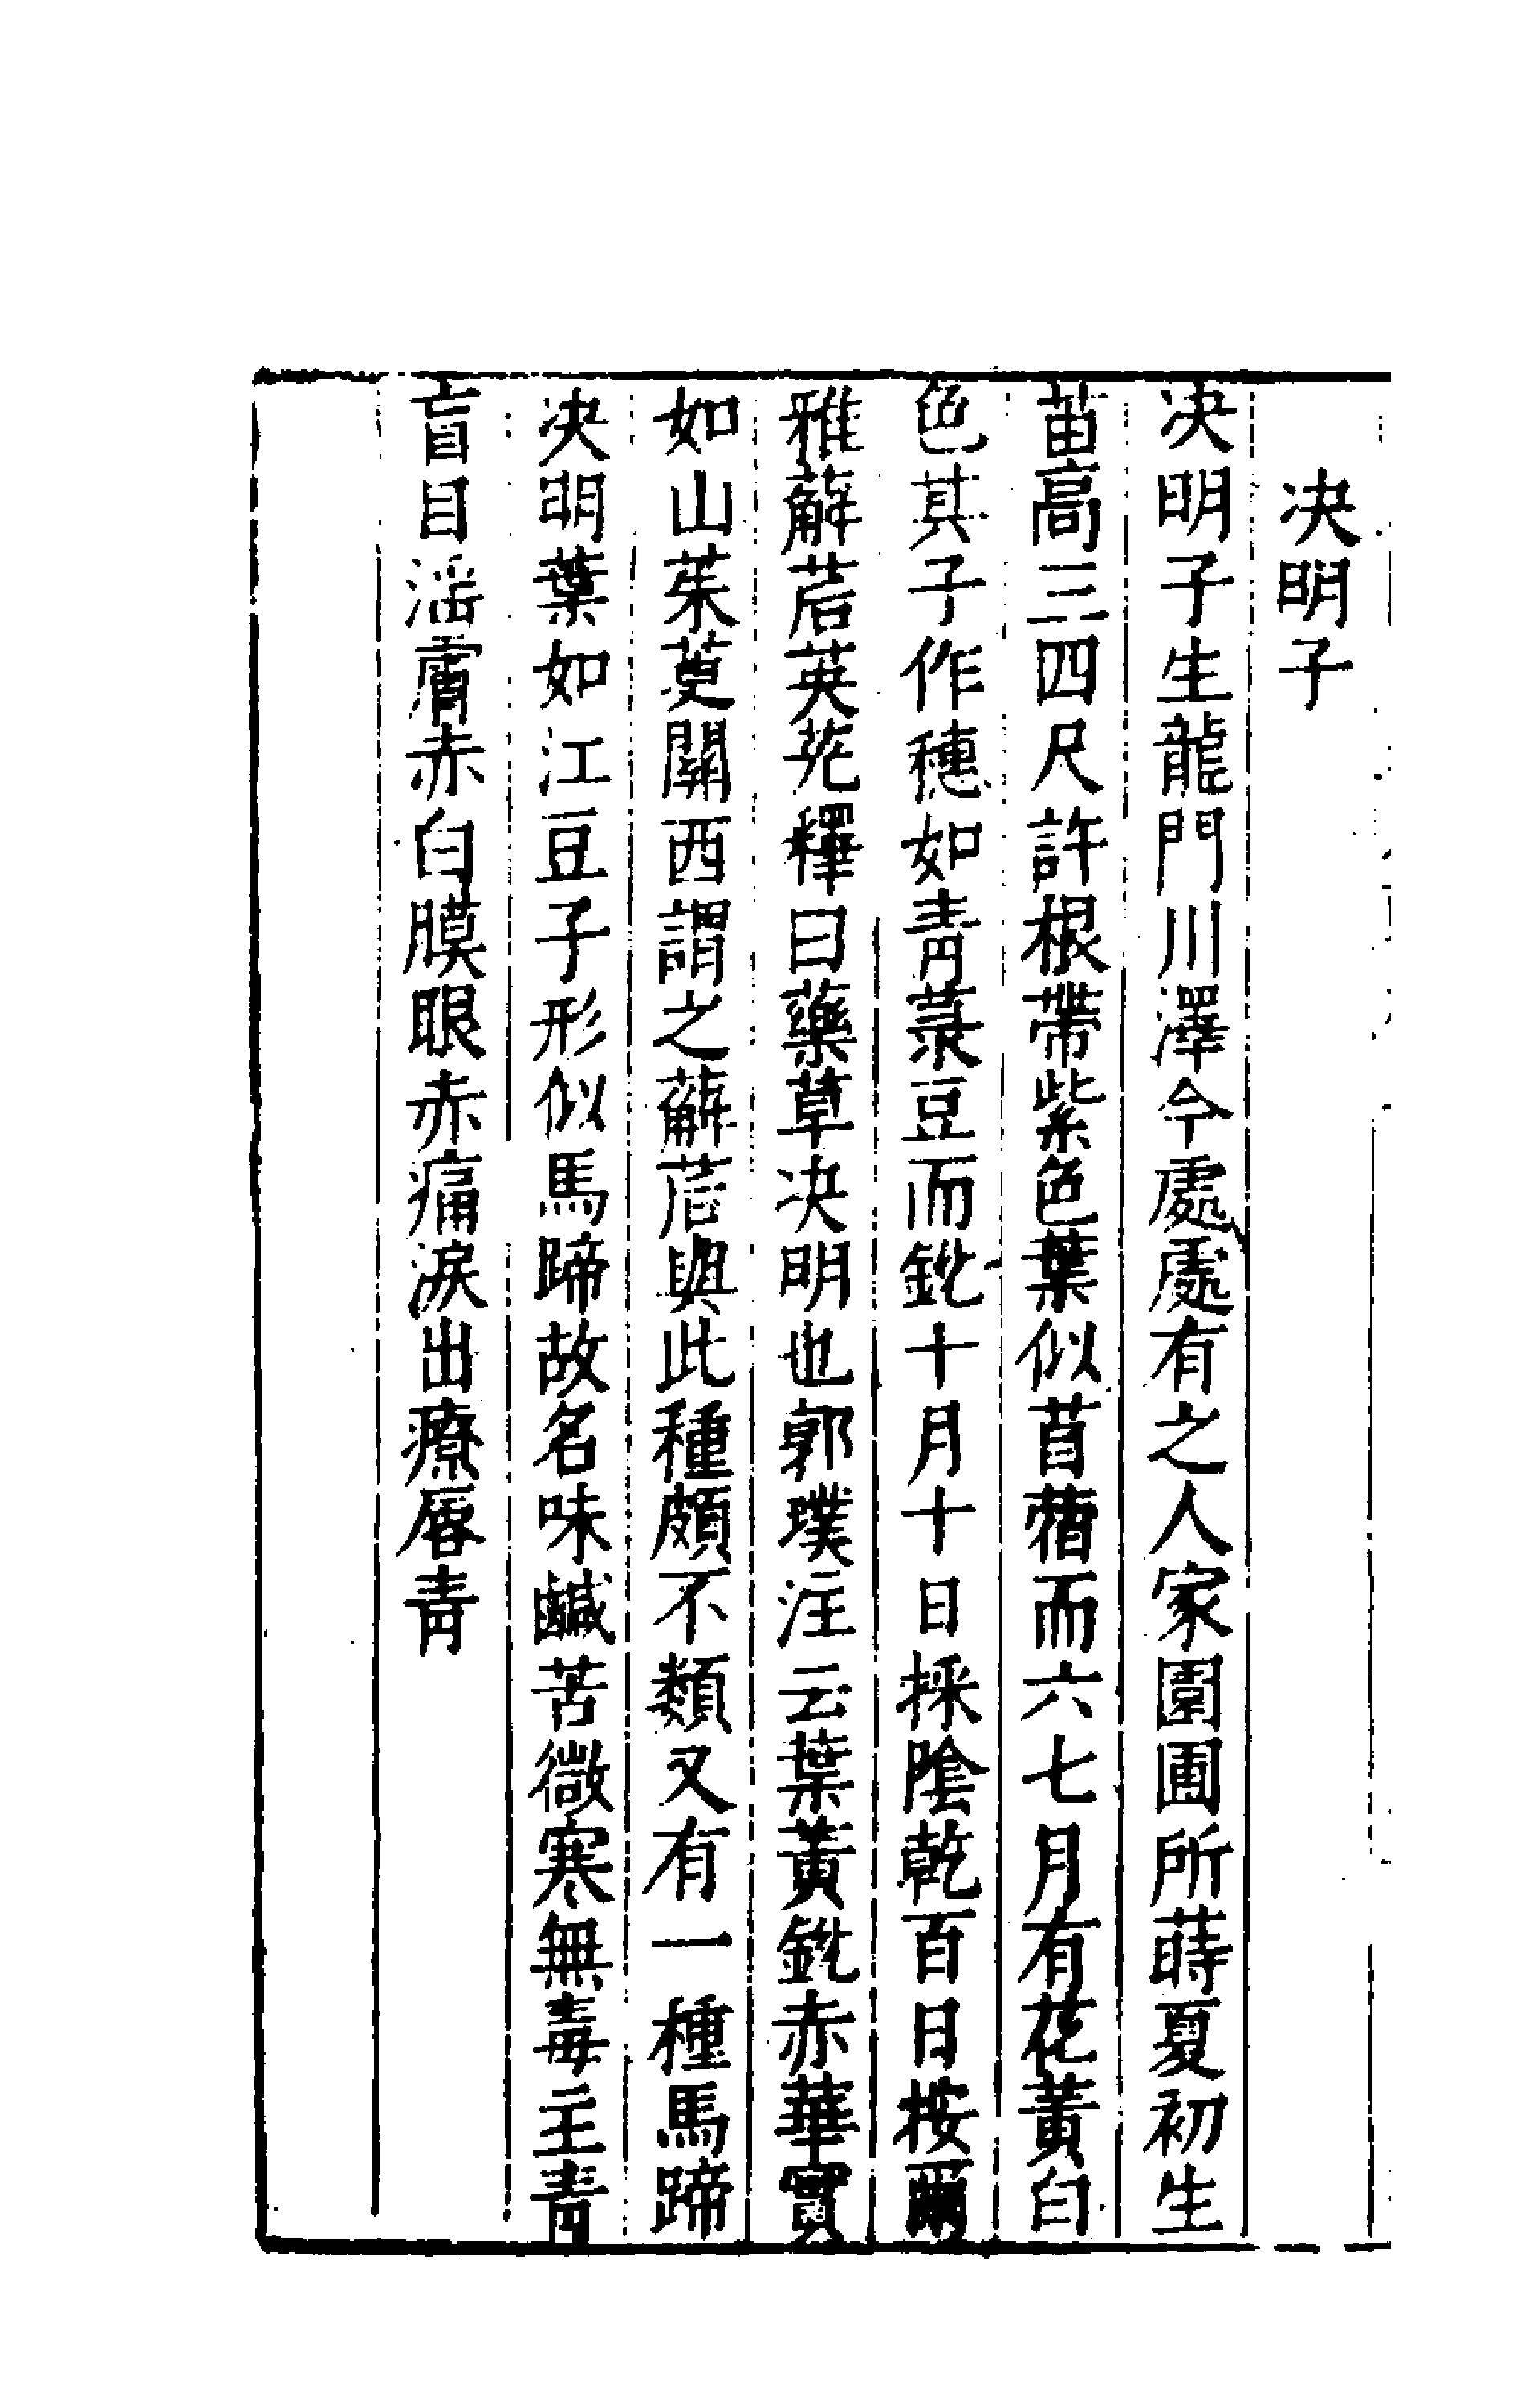 決明子
決明子生龍門川澤今處處有之人家園圃所蒔夏初生
苗高三四尺許根帶紫色葉似苜蓿而六七月有花黃白
色其子作穗如青菉豆而銳十月十日採陰乾百日按爾
雅薢茩英茪釋曰藥草決明也郭璞注云葉黃銳赤華實
如山茱萸關西謂之薢茩與此種頗不類又有一種馬蹄
決明葉如江豆子形似馬蹄故名味鹹苦微寒無毒主青
盲目淫膚赤白膜眼赤痛淚出療唇青